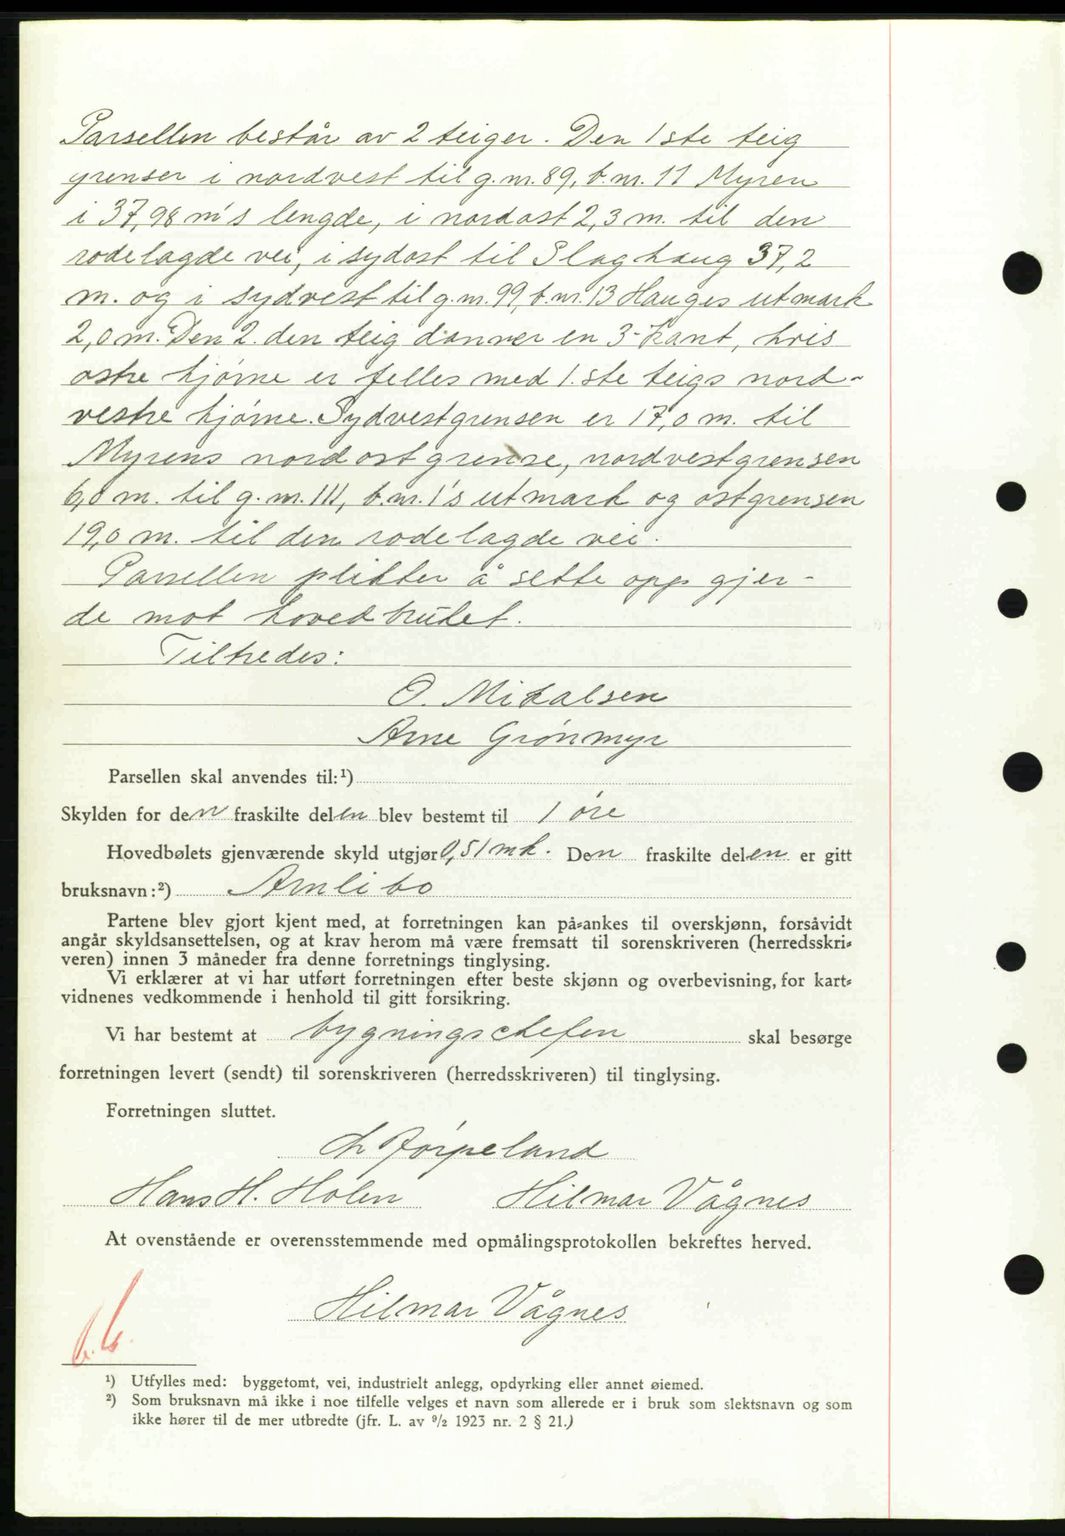 Parsellen består av 2 teiger. Den 1ste teig
grenser i nordvest til g.nr. 89, b.nr. 11 Myren
i 37,98 m's lengde, i nordost 2,3 m. til den
rodelagde vei, i sydost til Slaghaug 37,2
m. og i sydvest til g.nr. 99, b.nr. 13 Hauges utmark
2,0 m. Den 2. den teig danner en 3-kant, hvis
østre hjørne er felles med 1.ste teigs nord-
vestre hjørne. Sydvestgrensen er 17,0 m. til
Myrens nordostgrense, nordvestgrensen
6,0 m. til g.nr. 111, b.nr. 1's utmark og ostgrensen
19,0 m. til den rodelagde vei.
Parsellen plikter å sette opp gjer-
de mot hovedbruket.
Tiltredes:
O. Mikalsen
Arne Grönmyr
Parsellen skal anvendes til:¹)
Skylden for den fraskilte delen blev bestemt til 1 øre
Hovedbølets gjenværende skyld utgjør 0,51 mk. Den fraskilte delen er gitt
bruksnavn:²) Arnlibo
Partene blev gjort kjent med, at forretningen kan på-ankes til overskjønn, forsåvidt
angår skyldsansettelsen, og at krav herom må være fremsatt til sorenskriveren (herredsskri-
veren) innen 3 måneder fra denne forretnings tinglysing.
Vi erklærer at vi har utført forretningen efter beste skjønn og overbevisning, for kart-
vidnenes vedkommende i henhold til gitt forsikring.
Vi har bestemt at bygningschefen skal besørge
forretningen levert (sendt) til sorenskriveren (herredsskriveren) til tinglysing.
Forretningen sluttet.
Jörpeland
Hans H. Holen Hilmar Vågnes
At ovenstående er overensstemmende med opmålingsprotokollen bekreftes herved.
Hilmar Vågnes
¹) Utfylles med: byggetomt, vei, industrielt anlegg, opdyrking eller annet øiemed.
²) Som bruksnavn må ikke i noe tilfelle velges et navn som allerede er i bruk som slektsnavn og som
ikke hører til de mer utbredte (jfr. L. av ⁹/₂ 1923 nr. 2 § 21.)